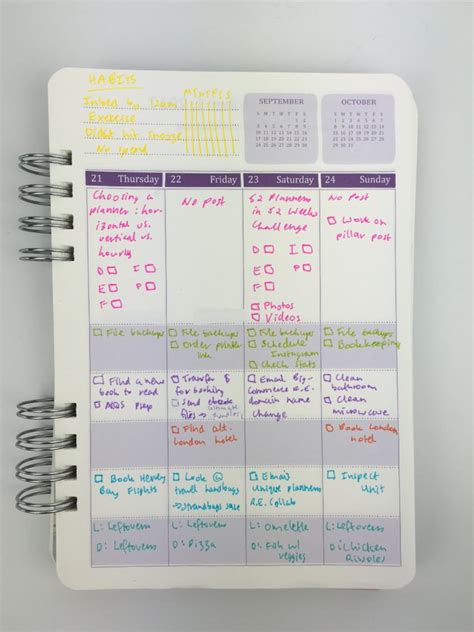 HABITS
M T W T F S S
In bed by 12am
Exercise
Didn't hit snooze
No spend
SEPTEMBER
S M T W T F S
OCTOBER
S M T W T F S
21 Thursday
22 Friday
23 Saturday
24 Sunday
Choosing a
planner: hor-
izontal vs.
vertical vs.
hourly
D I
E P
F
No post
52 Planners
in 52 Weeks
Challenge
D I
E P
F
Photos
Videos
No post
Work on
pillar post
File backups
File backups
Order printer
ink
File backups
Schedule
Instagram
Check stats
File backups
Bookkeeping
Find a new
book to read
prep
Transfer $
for booking
Send ebook
Email Big-
commerce R.E.
domain name
change
Clean
bathroom
Clean
microwave
Find alt.
London hotel
Book London
hotel
Book Hervey
Bay Flights
Look @
travel handbags
→ strandbags sale
Email
unique planners
R.E. collab
Inspect
Unit
L: Leftovers
D: Leftovers
L: Leftovers
D: Pizza
L: Omelette
D: Fish w/
veggies
L: Leftovers
D: Chicken